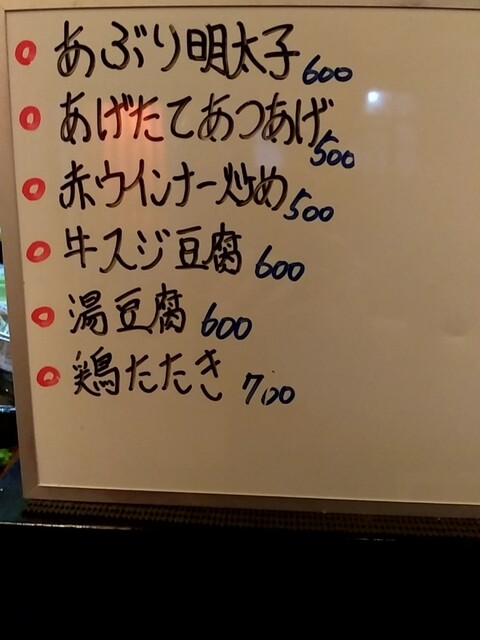 あぶり明太子 600
あげたてあつあげ 500
赤ウインナー炒め 500
牛スジ豆腐 600
湯豆腐 600
鶏たたき 700